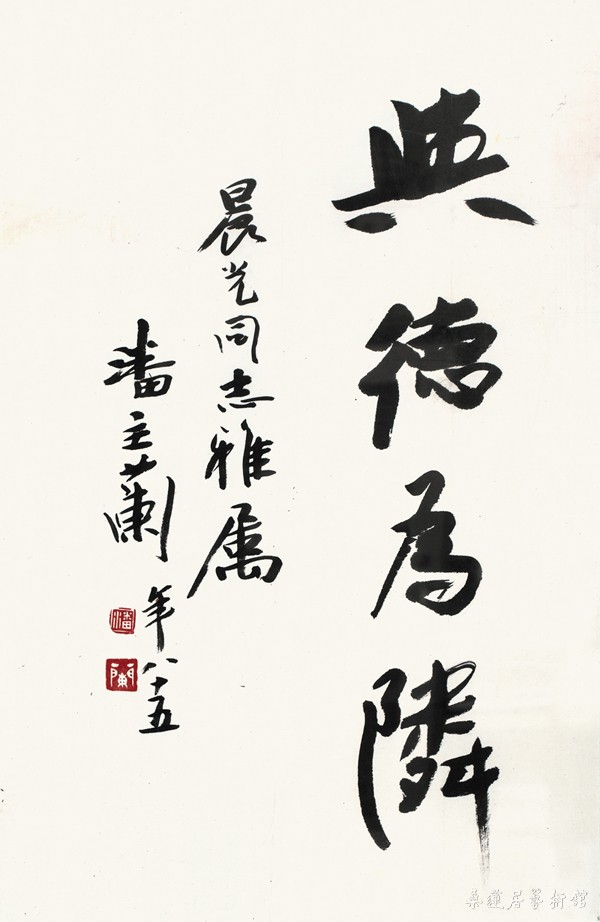 與德為隣
晨光同志雅屬
潘主蘭年八十五
潘
蘭
藥蓮居藝術館